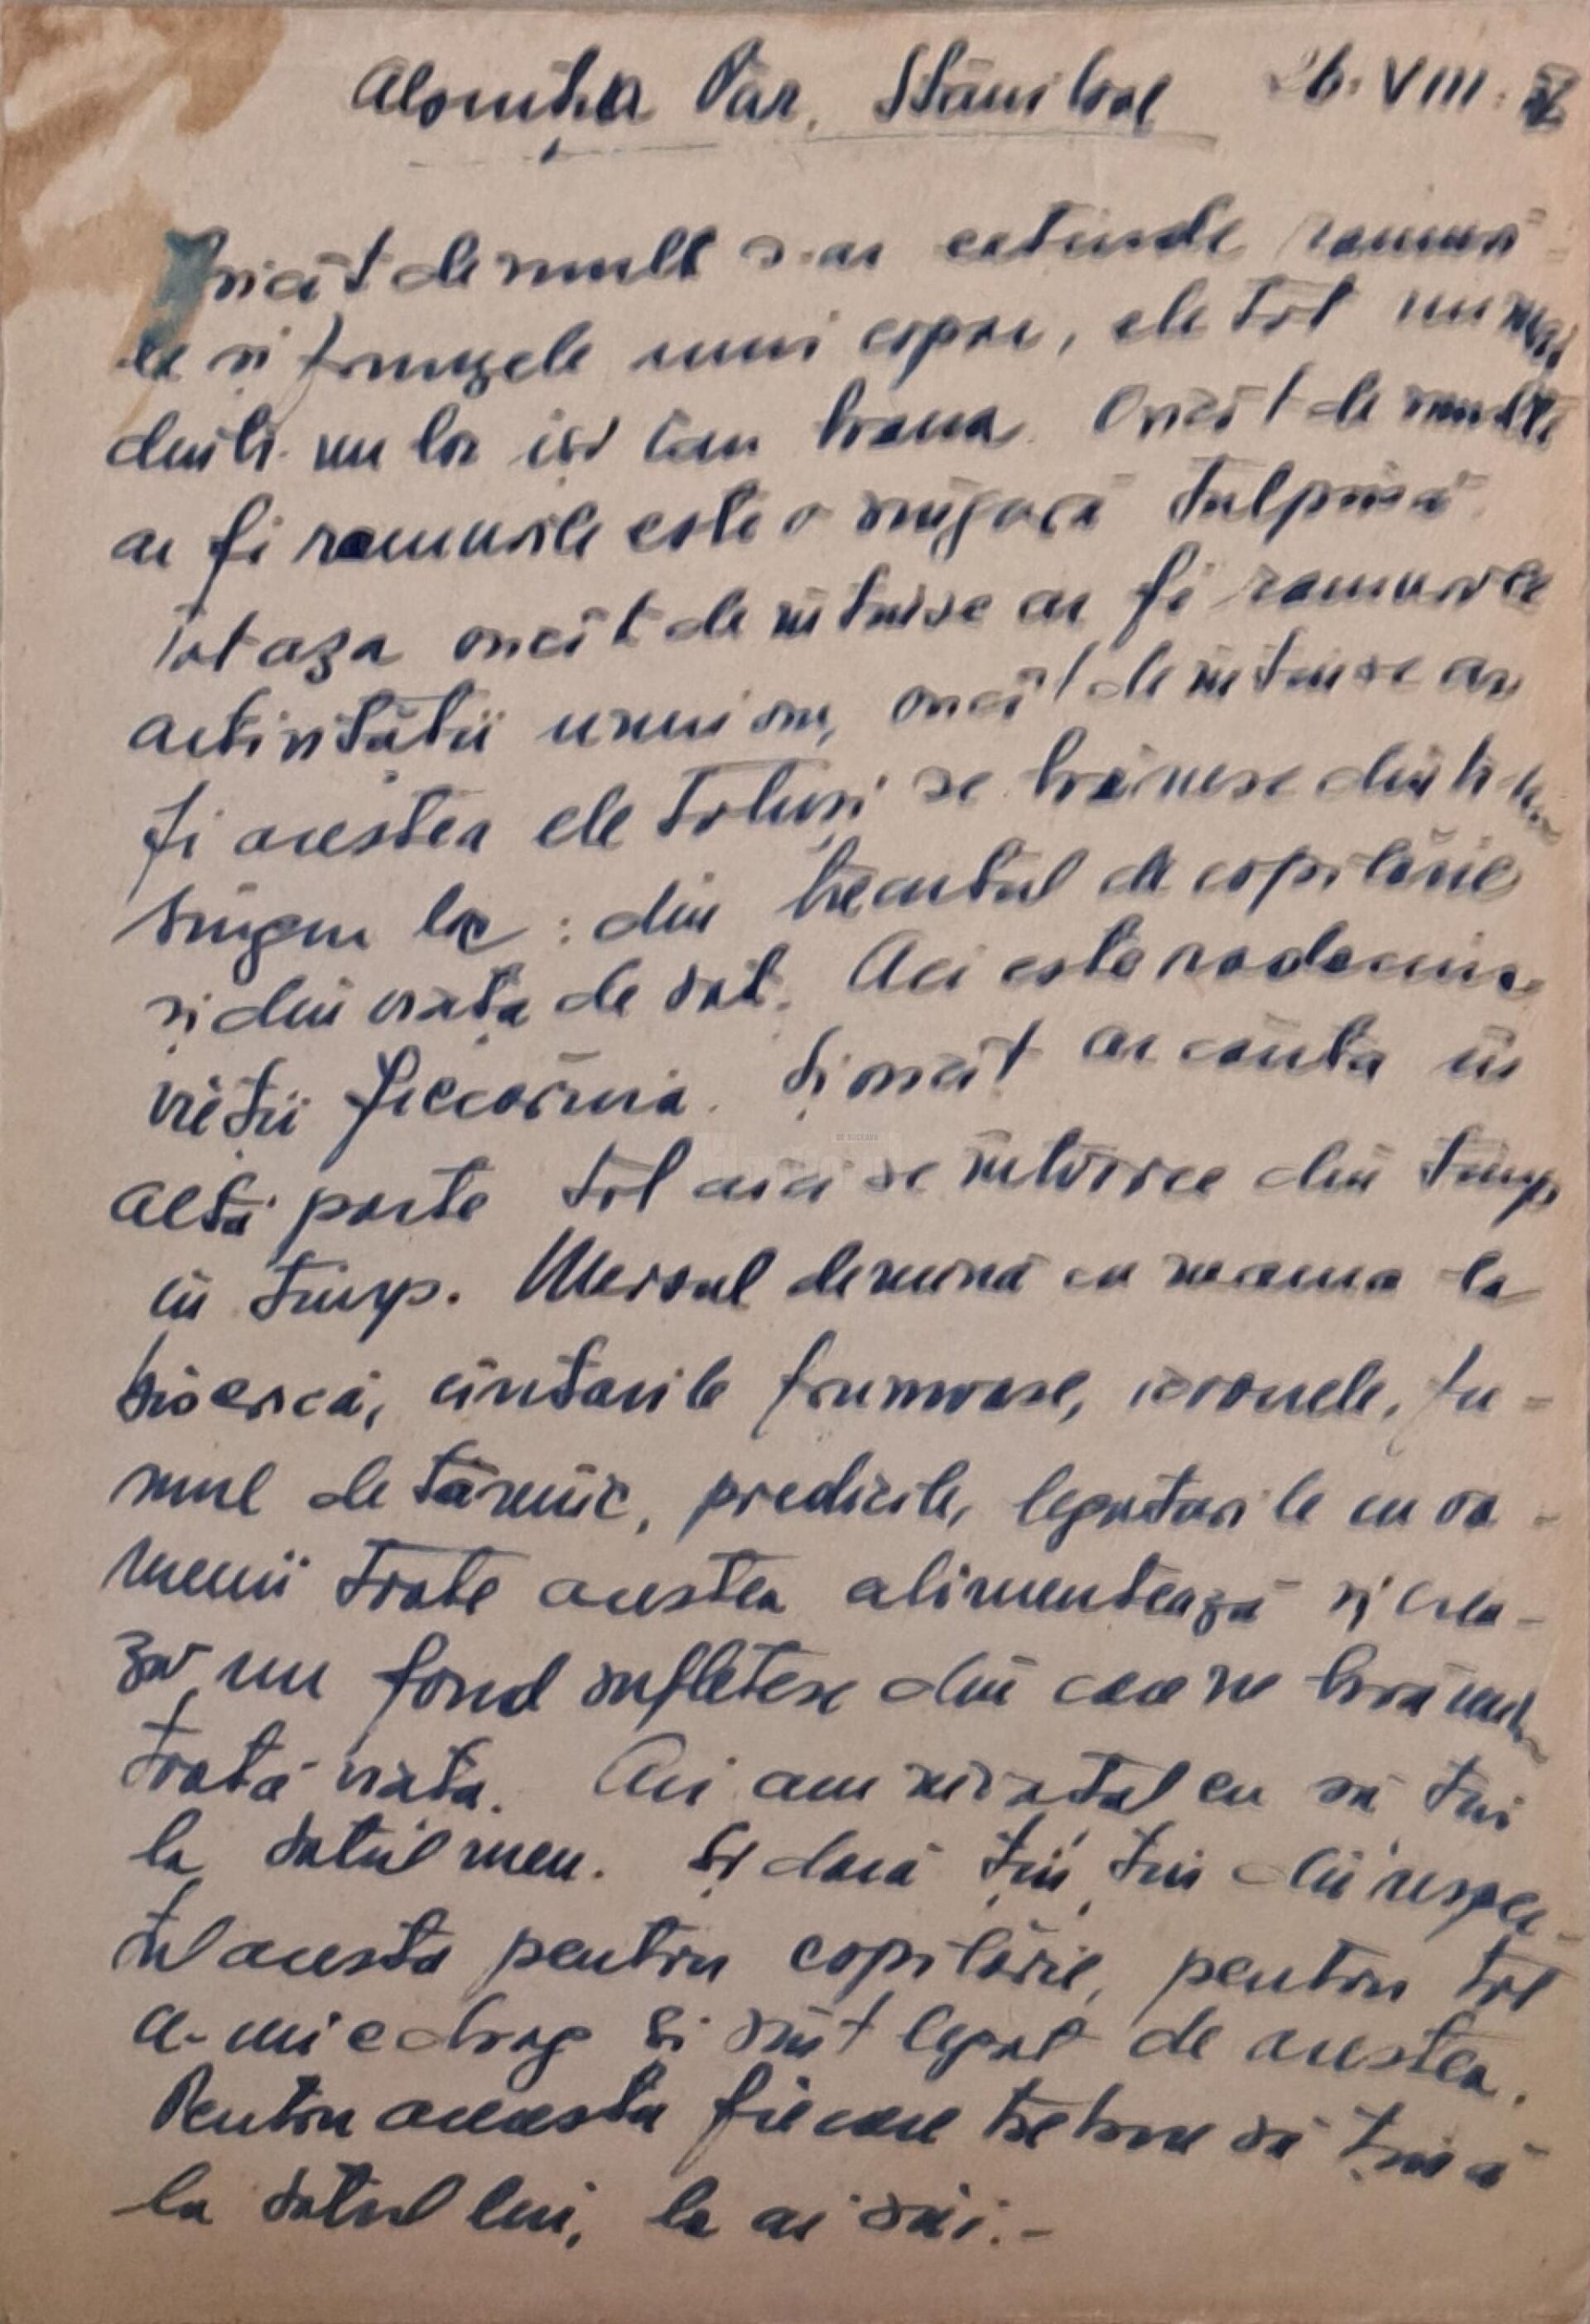 Păr. Stăniloae 26. VIII.
Oricît de mult s-ar extinde ramuri-
le si frunzele unui copac, ele tot numai
dintr-un loc isi iau hrana. Oricît de multe
ar fi ramurile este o singură tulpină.
Tot asa oricît de intinse ar fi ramurile
activitătii unui om, oricît de intinse ar
fi acestea ele totusi se hrănesc dintr-un
singur loc: din trecutul de copilărie
si din viata de sat. Aci este radacina
vietii fiecăruia. Si oricît ar căuta în
altă parte tot aici se intoarce din timp
in timp. Mersul de mînă cu mama la
biserică, cîntarile frumoase, icoanele, fu-
mul de tămîie, predicile, legaturile cu oa-
menii toate acestea alimentează si crea-
ză un fond sufletesc din care ne hrănim
toată viata. Aci am invatat eu să tin
la satul meu. Si dacă tin, tin din respec-
tul acesta pentru copilărie, pentru tot
ce mi e drag si sînt legat de acestea.
Pentru aceasta fiecare trebuie să tină
la satul lui, la ai săi.-